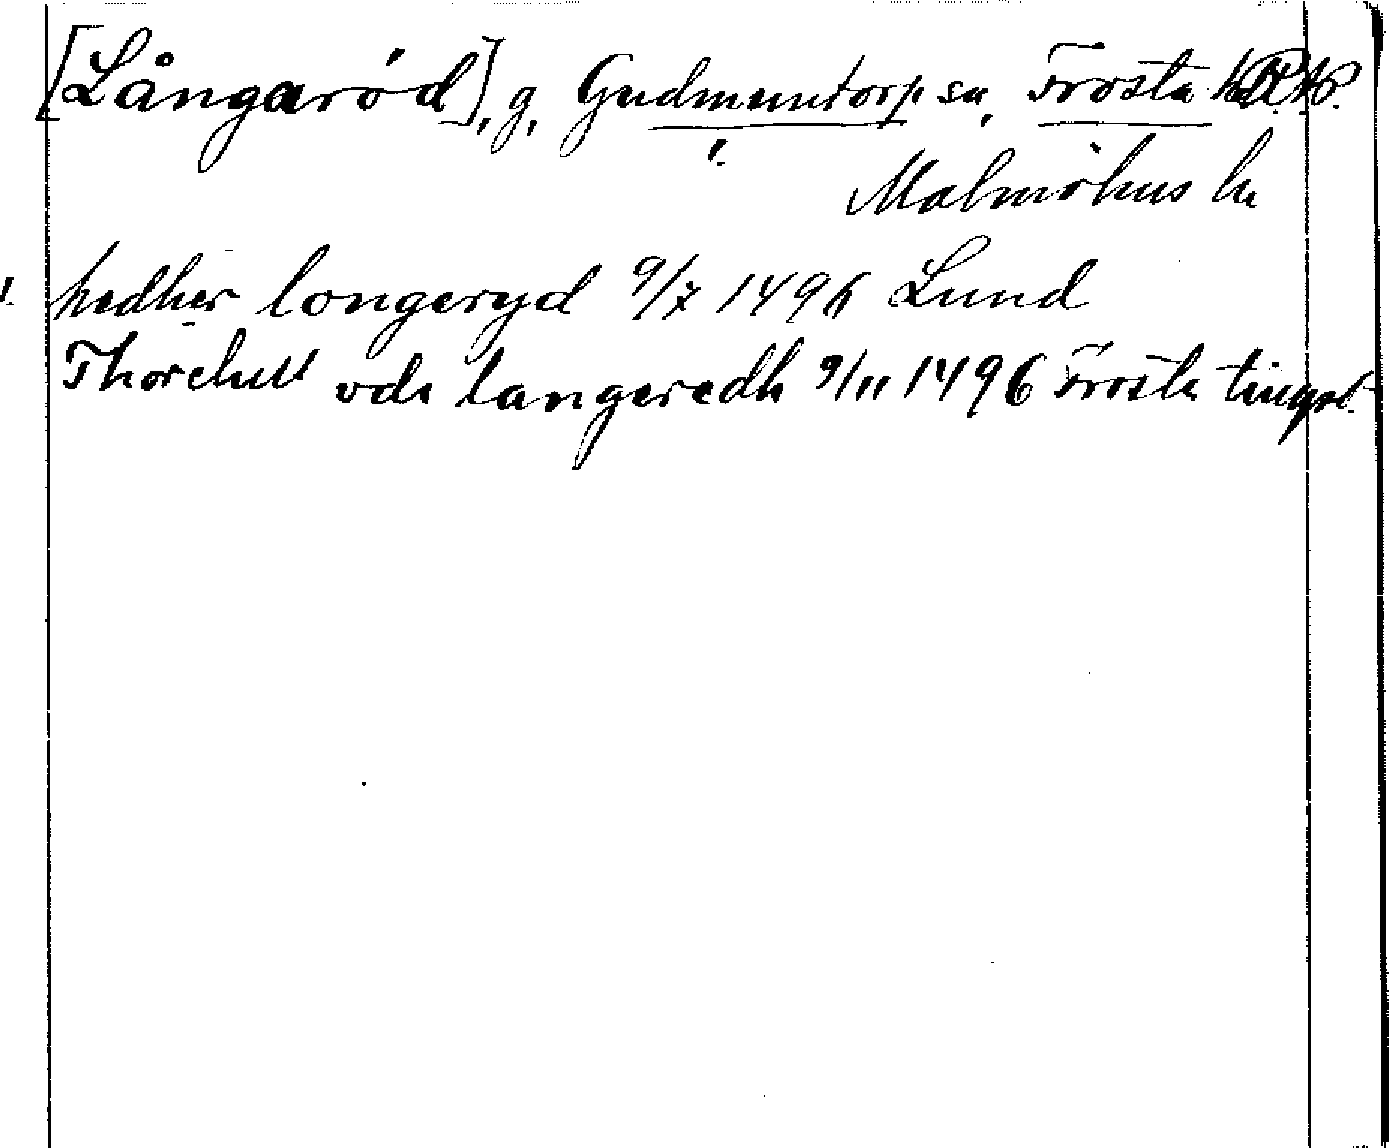 [Långaröd], g, Gudmuntorp sn, Frosta hd
Malmöhus ln
! hedher longeryd 9/7 1496 Lund
Thorchill vdi langeredh 9/11 1496 Frosta tingst.